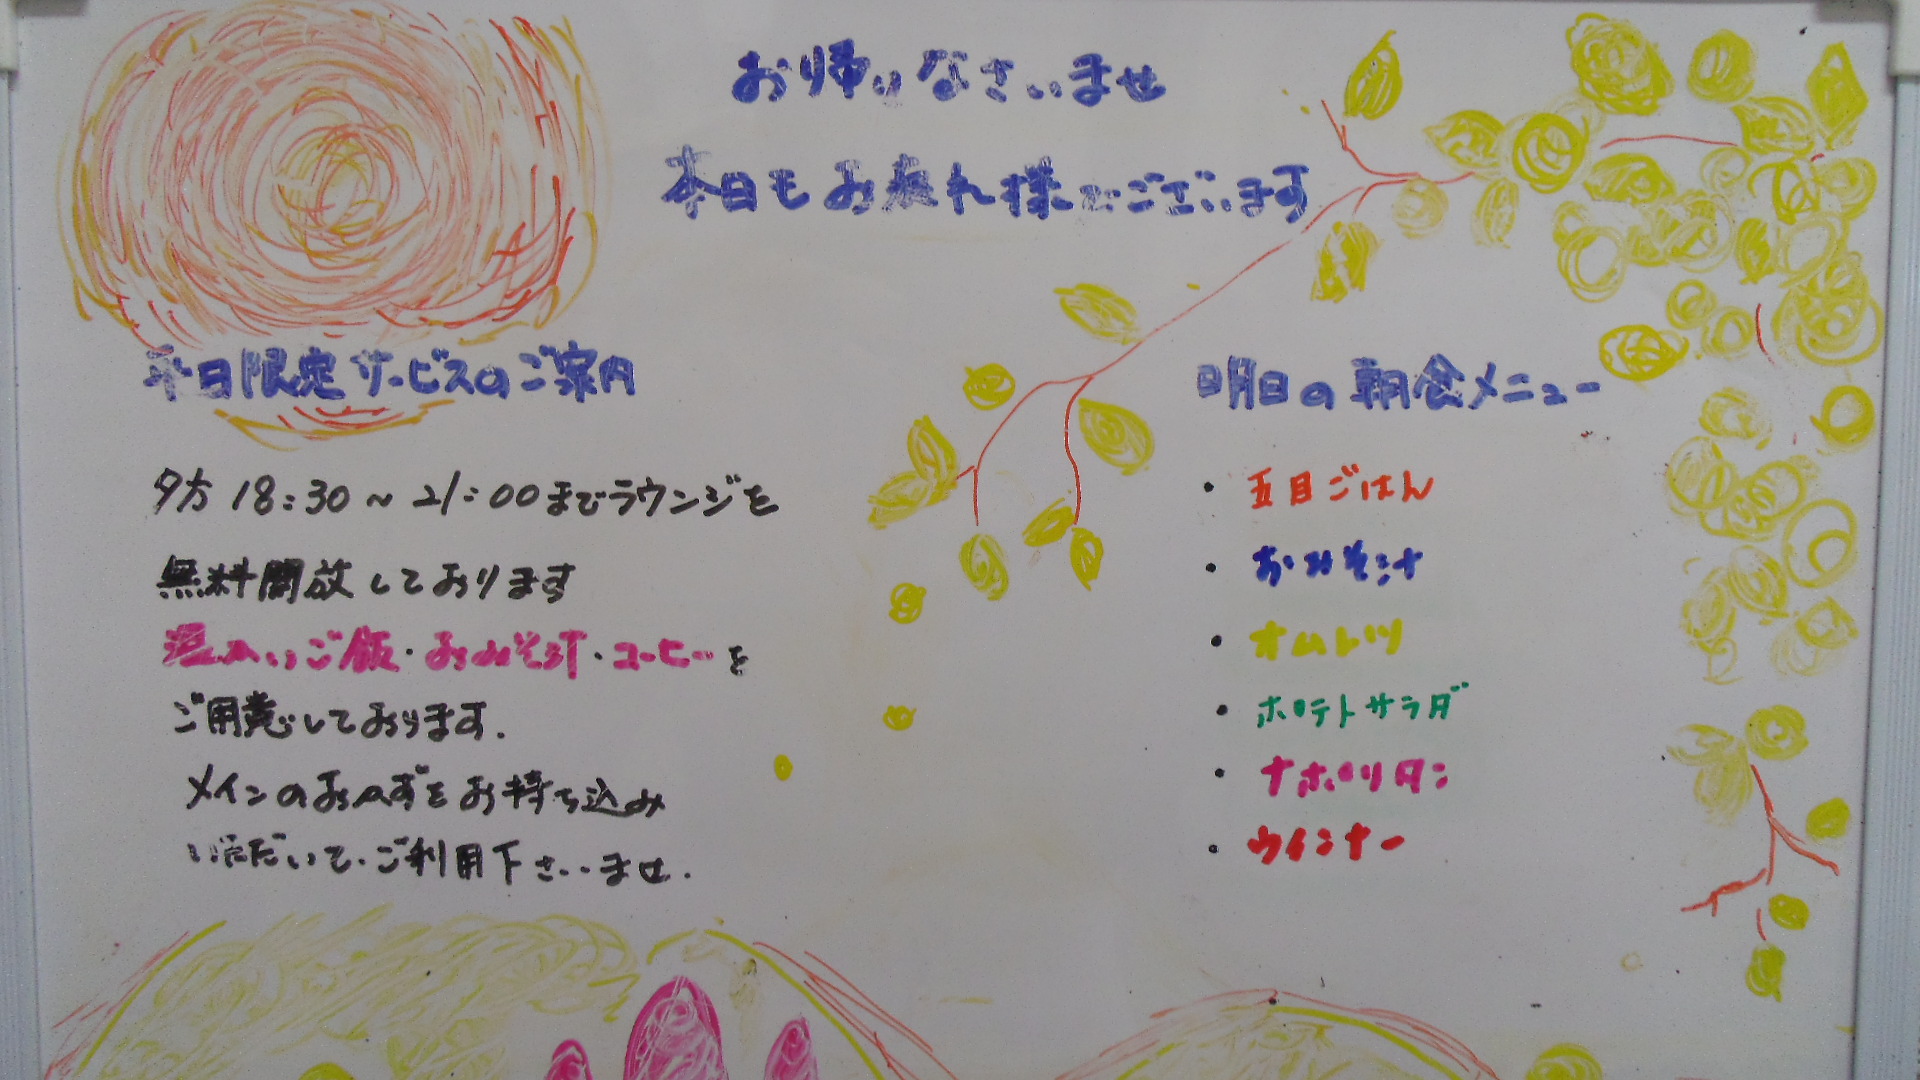 お帰りなさいませ
本日もお疲れ様でございます
平日限定サービスのご案内
夕方 18:30～21:00までラウンジを
無料開放しております
温かいご飯・おみそ汁・コーヒーを
ご用意しております.
メインのおかずをお持ち込み
いただいて、ご利用下さいませ.
明日の朝食メニュー
・五目ごはん
・おみそ汁
・オムレツ
・ポテトサラダ
・ナポリタン
・ウインナー